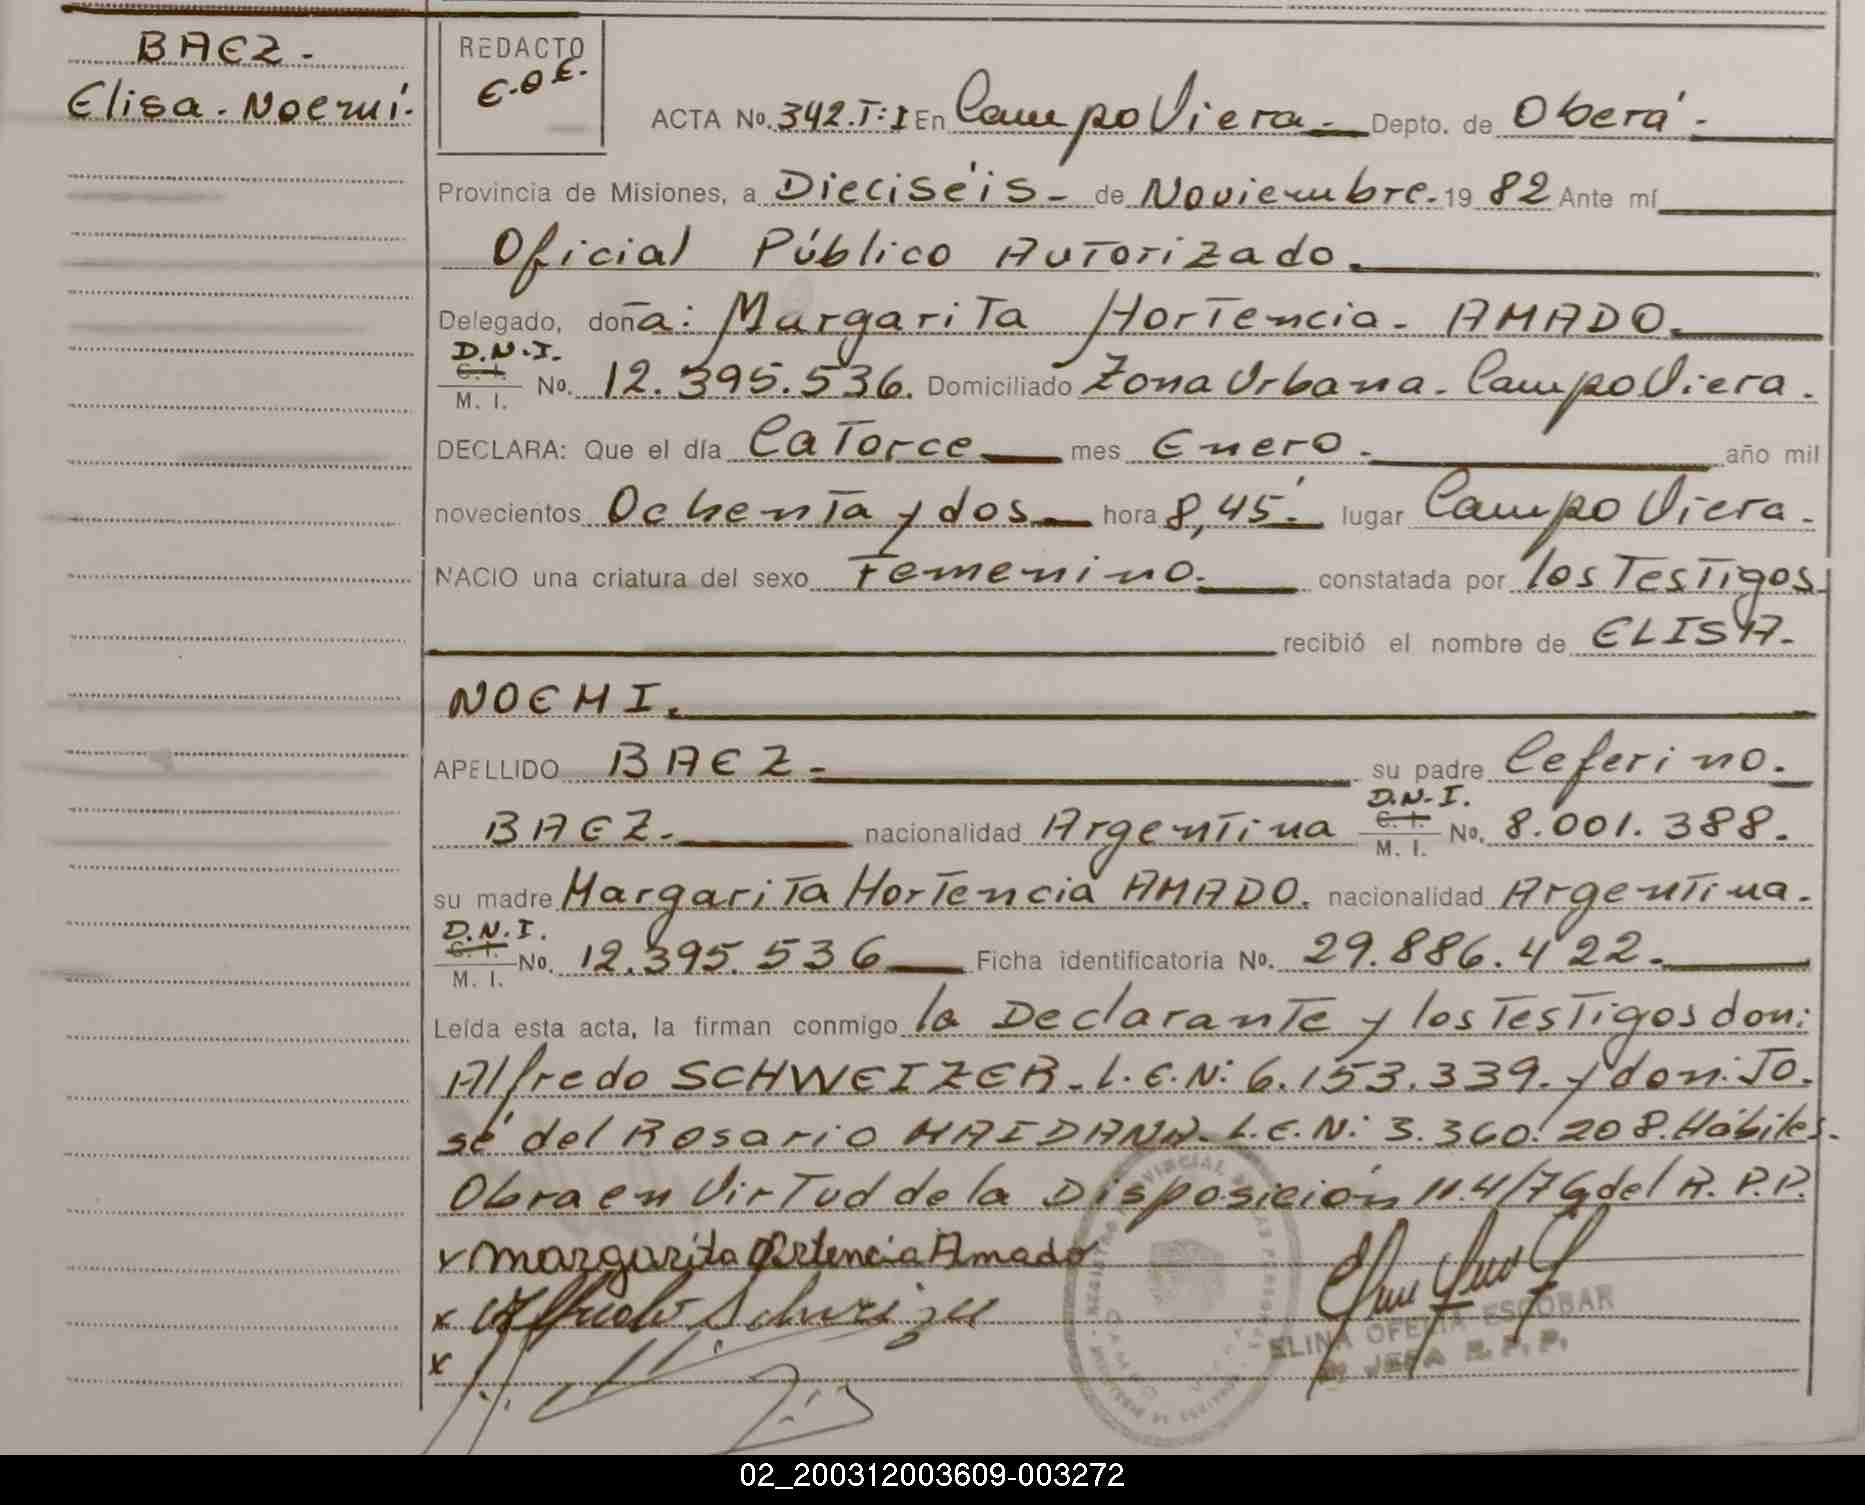 BAEZ.
Elisa. Noemí.
REDACTO
E.O.E.
ACTA No. 342.T:I En Campo Viera. Depto. de Oberá.
Provincia de Misiones, a Dieciséis. de Noviembre. 19 82 Ante mí
Oficial Público Autorizado.
Delegado, doña: Margarita Hortencia. AMADO.
D.N.I.
C. I.
M. I.
No. 12.395.536. Domiciliado Zona Urbana. Campo Viera.
DECLARA: Que el día Catorce mes Enero. año mil
novecientos Ochenta y dos. hora 8,45'. lugar Campo Viera.
NACIO una criatura del sexo Femenino. constatada por los Testigos.
recibió el nombre de ELISA.
NOEMI.
APELLIDO BAEZ. su padre Ceferino.
BAEZ. nacionalidad Argentina D.N.I. C. I. M. I. No. 8.001.388.
su madre Margarita Hortencia AMADO. nacionalidad Argentina.
D.N.I.
C. I.
M. I.
No. 12.395.536 Ficha identificatoria No. 29.886.422.
Leída esta acta, la firman conmigo la Declarante y los Testigos don:
Alfredo SCHWEIZER. L.E.N: 6.153.339. y don: Jo.
sé del Rosario MAIDANA. L.E.N: 3.360.208. Hábiles.
Obra en Virtud de la Disposición n.4/76 del R.P.P.
x Margarita Ortencia Amado
x Alfredo Schweizer
x
ELINA OFELIA ESCOBAR
JEFA R.P.P.
02_200312003609-003272